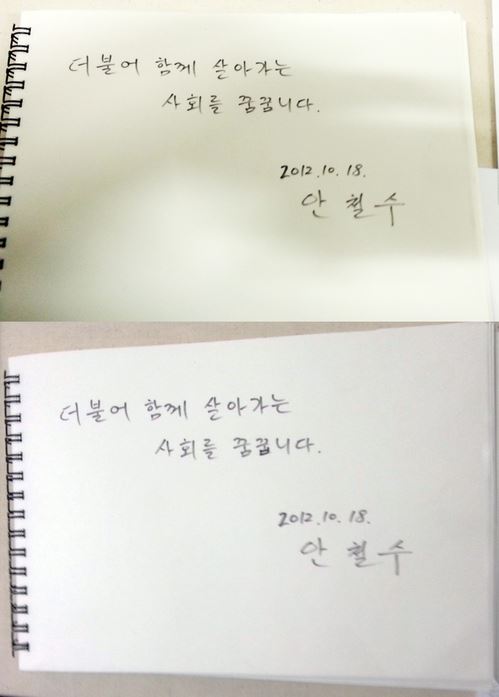 더불어 함께 살아가는
사회를 꿈꿉니다.
2012.10.18.
안철수
더불어 함께 살아가는
사회를 꿈꿉니다.
2012.10.18.
안철수